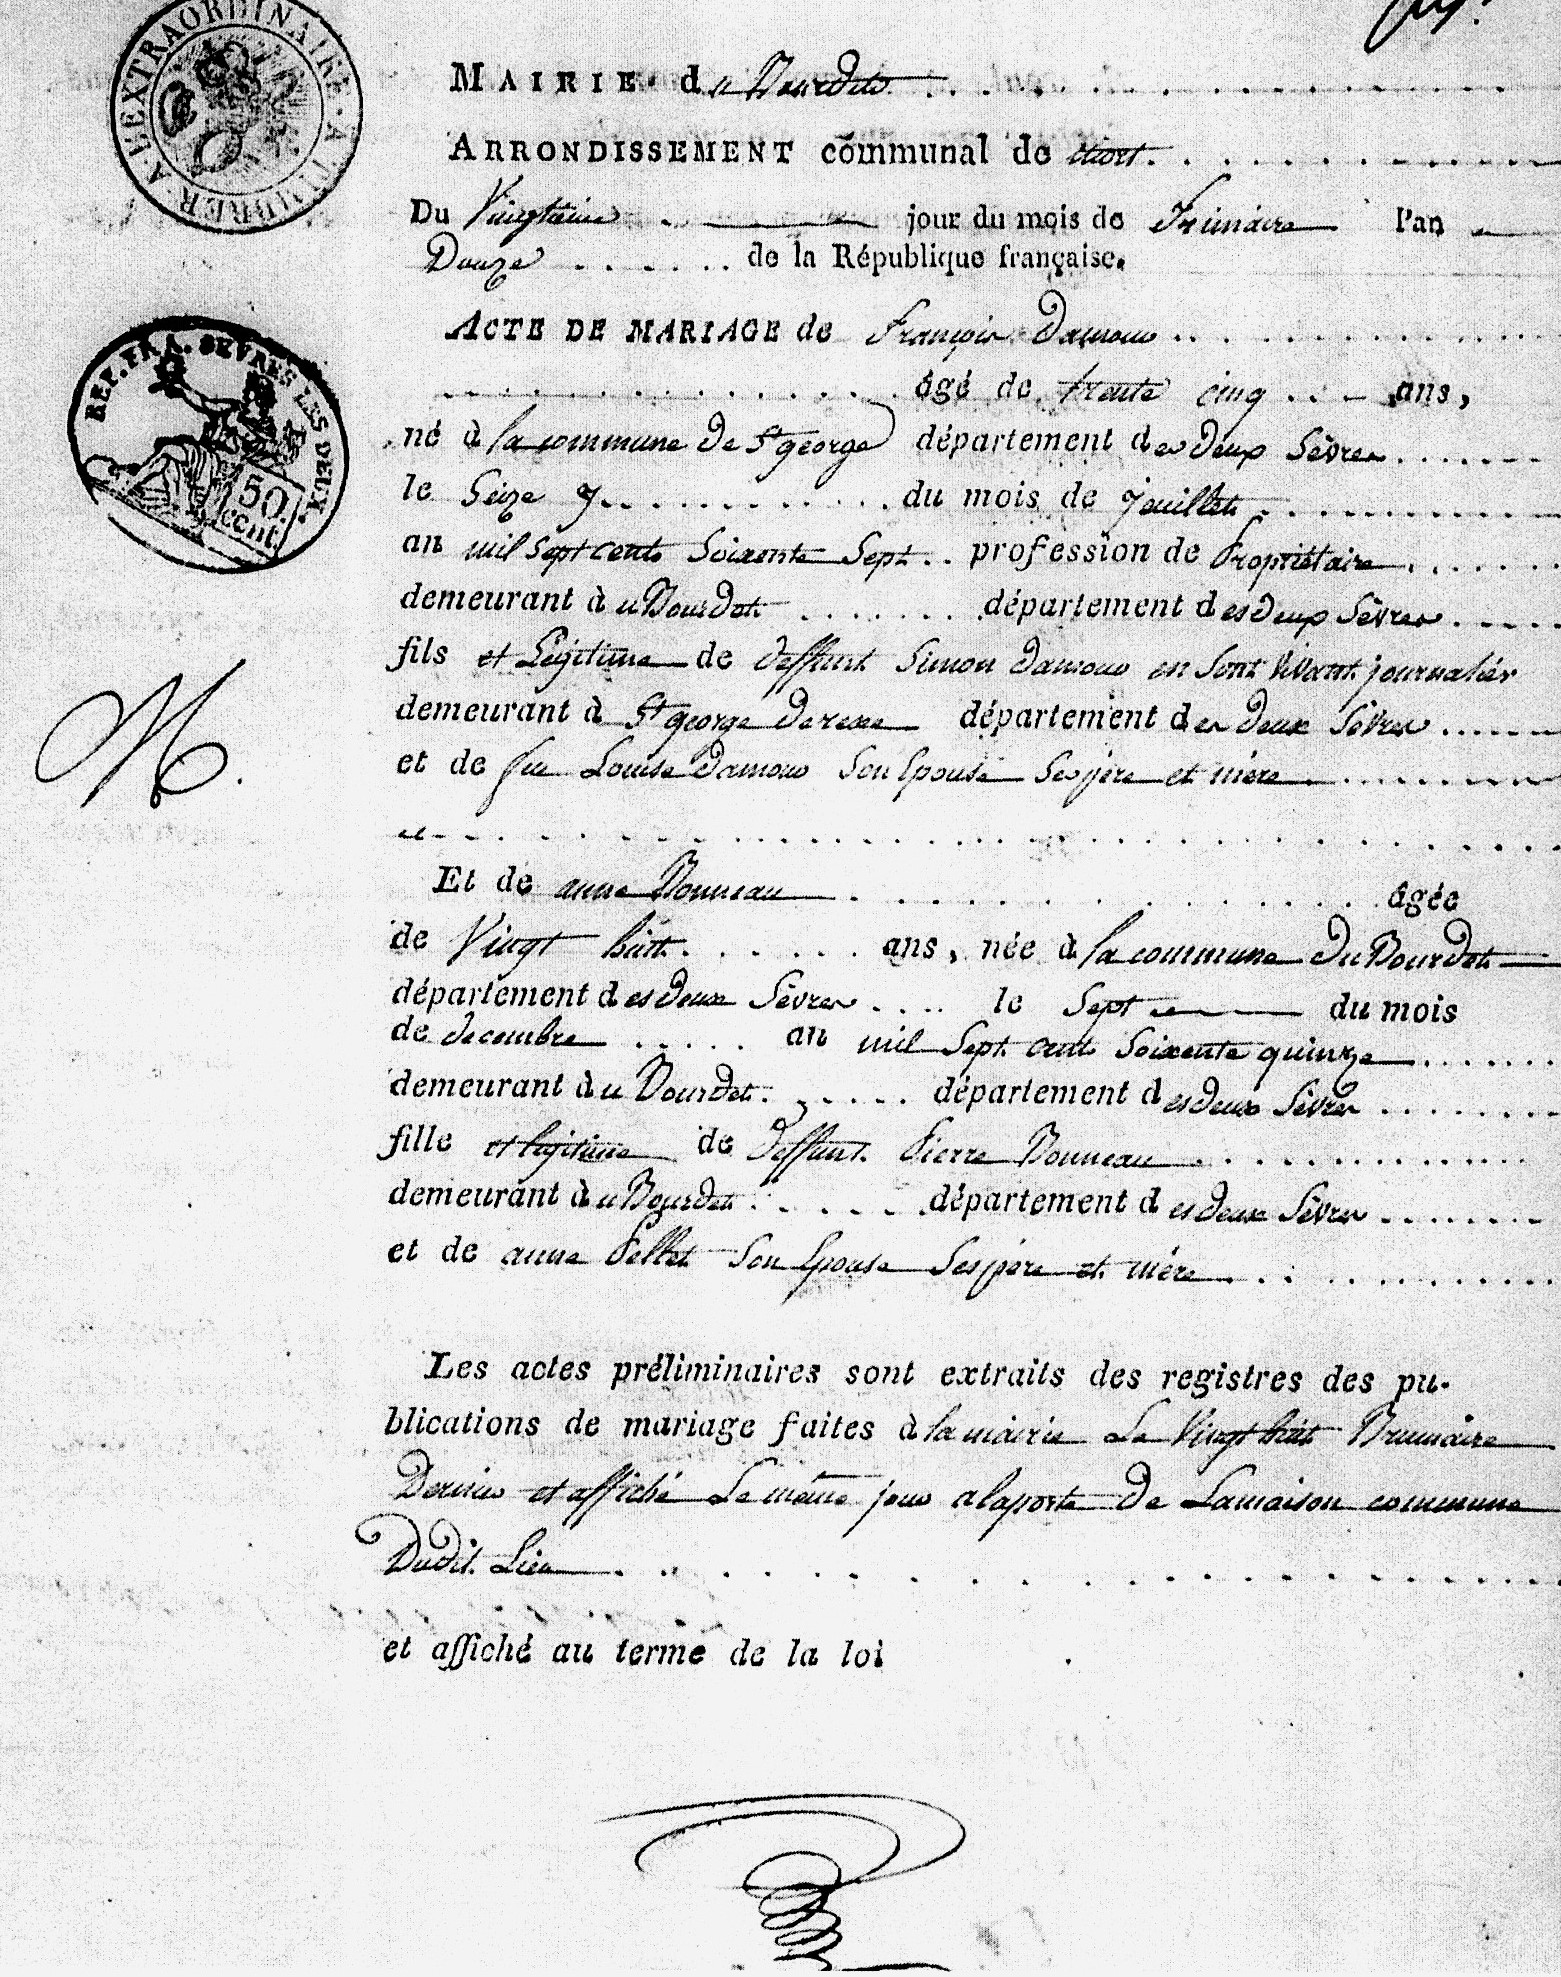 A L'EXTRAORDINAIRE. A TIMBRER.
MAIRIE du Bourdet
ARRONDISSEMENT communal de Niort
Du Vingtieme jour du mois de Frimaire l'an
Douze de la République française.
REP. FRA. SEVRES LES DEUX.
50 cent.
ACTE DE MARIAGE de François Damour
âgé de trente cinq ans,
né à la commune de St george département des deux Sèvres
le Seize du mois de juillet
an mil sept cents Soixante Sept profession de Propriétaire
demeurant à u Bourdet département des deux Sèvres
fils et Légitime de deffunt Simon Damour en Sont vivant journalier
demeurant à St george derexe département des deux Sèvres
et de fue Louise Damour Son Epouse Ses père et mère
Et de anne Bonneau âgée
de Vingt huit ans, née à la commune du Bourdet
département des deux Sèvres le Sept du mois
de decembre an mil Sept cent Soixente quinze
demeurant à u Bourdet département des deux Sèvres
fille et legitime de deffunt Pierre Bonneau
demeurant à u Bourdet département des deux Sèvres
et de anne Pellet Son Epouse Ses père et mère
Les actes préliminaires sont extraits des registres des pu-
blications de mariage faites à la mairie Le Vingt huit Brumaire
Dernier et affiché Le même jour a la porte de La maison commune
Dudit Lieu
et affiché au terme de la loi